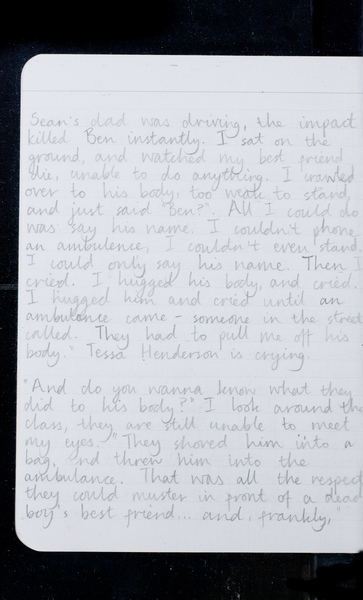 Sean's dad was driving, the impact
killed Ben instantly. I sat on the
ground, and watched my best friend
die, unable to do anything. I crawled
over to his body, too weak to stand,
and just said "Ben?". All I could do
was say his name. I couldn't phone
an ambulence, I couldn't even stand.
I could only say his name. Then I
cried. I hugged his body, and cried.
I hugged him and cried until an
ambulance came - someone in the street
called. They had to pull me off his
body." Tessa Henderson is crying.
"And do you wanna know what they
did to his body?" I look around the
class, they are still unable to meet
my eyes. "They shoved him into a
bag, and threw him into the
ambulance. That was all the respect
they could muster in front of a dead
boy's best friend... and, frankly,"